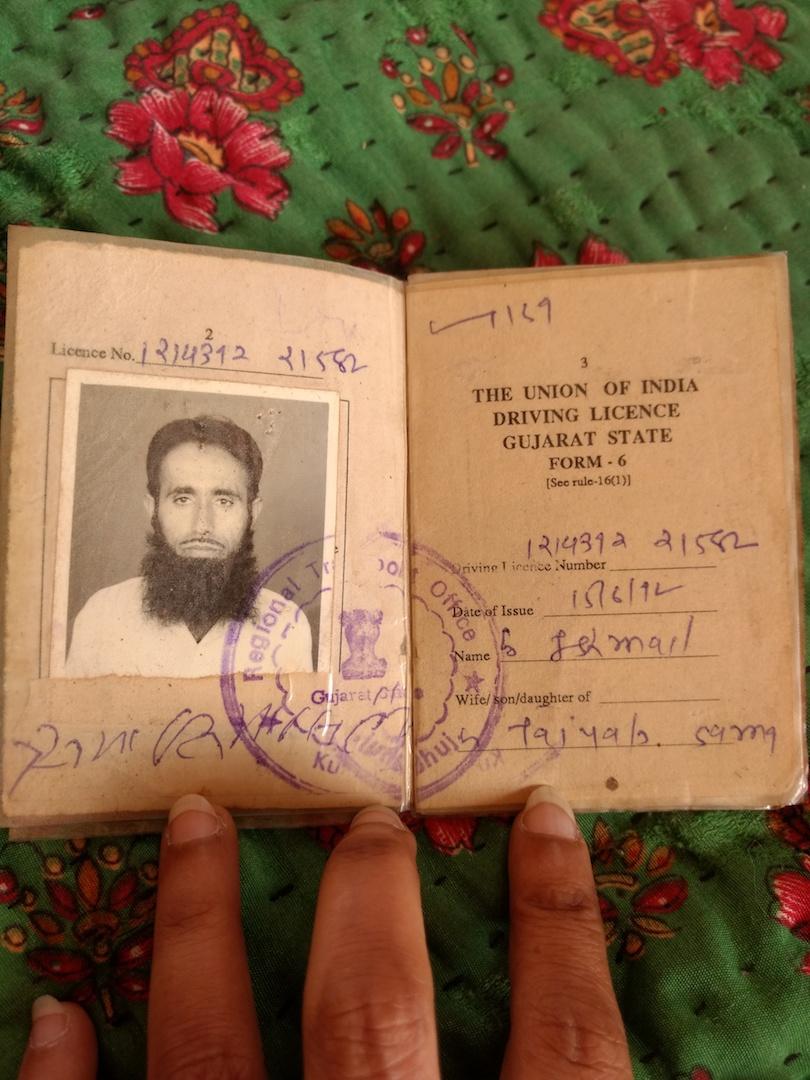 2
Licence No. 12/4392 21582
Regional Transport Office
Gujarat
Bhuj
3
THE UNION OF INDIA
DRIVING LICENCE
GUJARAT STATE
FORM - 6
[See rule-16(1)]
Driving Licence Number 12/4392 21582
Date of Issue 15/6/92
Name Ishmail
Wife/son/daughter of
Taiyab. sama